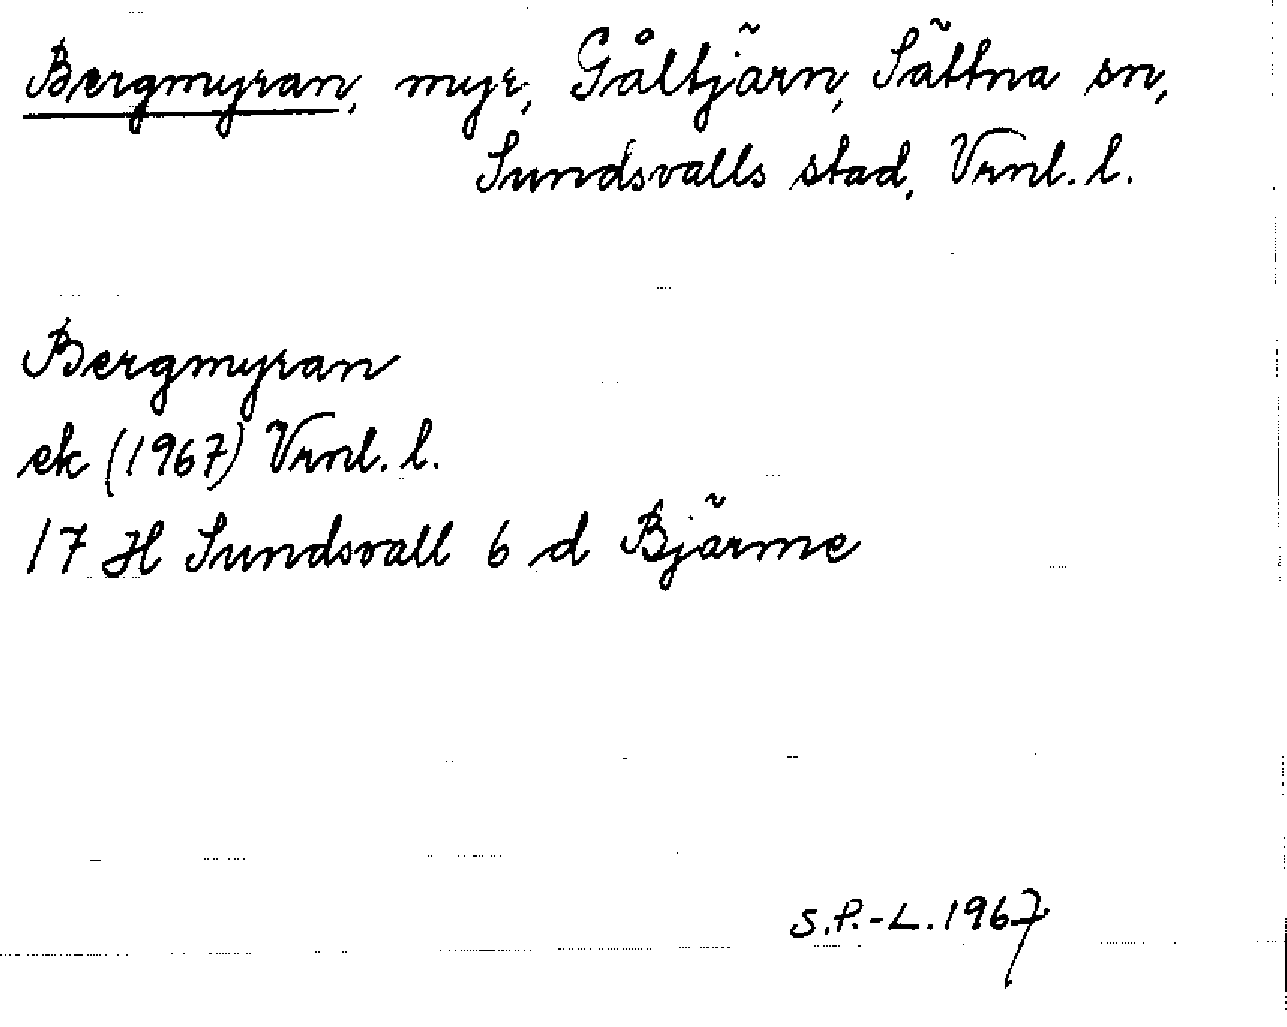 Bergmyran, myr, Gåltjärn, Sättna sn,
Sundsvalls stad, Vrnl. l.
Bergmyran
ek (1967) Vrnl. l.
17 H Sundsvall 6 d Bjärme
S.P.-L. 1967